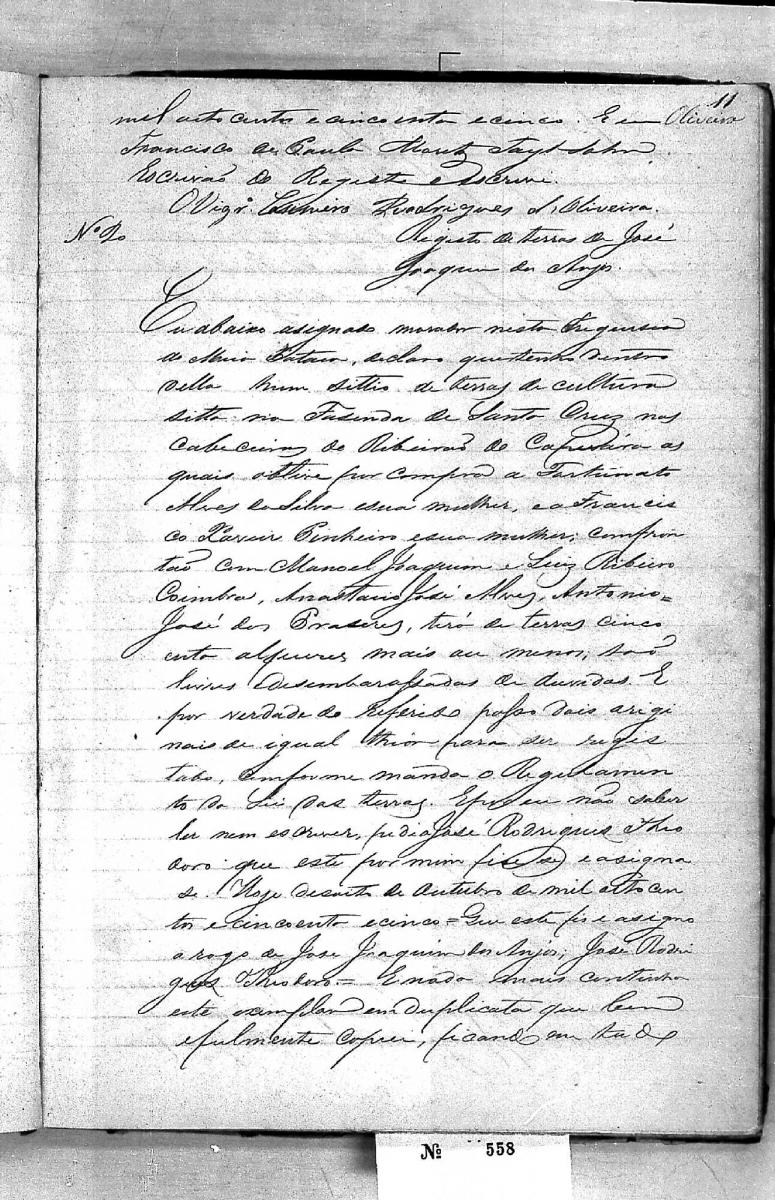 11
Oliveira
mil oito cento e cincoenta e cinco. E eu
Francisco de Paula
Escrivão do Registo escrevi.
O Vigrº. Rodrigues d'Oliveira.
Nº 20
Registo de terras de José
Joaquim dos Anjos.
Eu abaixo asignado morador nesta Freguesia
do Meia Pataca, declaro que tenho dentro
della hum sittio de terras de cultura
sitto na Fasenda de Santa Cruz nas
cabeceiras do Ribeirão do Capivára as
quais obtive por compra a Fortunato
Alves da Silva e sua mulher, e a Francis
co Xavier Pinheiro e sua mulher; comfron
tão com Manoel Joaquim e Luiz Ribeiro
Coimbra, Anastacio José Alves, Antonio=
José dos Praseres, terá de terras cinco
enta alqueires mais ou menos, são
livres e desembarassadas de duvidas. E
por verdade do referido passo dois origi
nais de igual thior para ser regis
tado, comforme manda o Regulamen
to da Lei das terras. E por eu não saber
ler nem escrever, pedi a José Rodrigues Theo
doro que este por mim fisesse e asigna
se. Hoje desoito de Outubro de mil oito cen
tos e cincoenta e cinco = Que este fis e asigno
a rogo de José Joaquim dos Anjos; José Rodri
gues Theodoro = E nada mais continha
este exemplar em duplicata que bem
e fielmente copiei, ficando em tudo
Nº 558